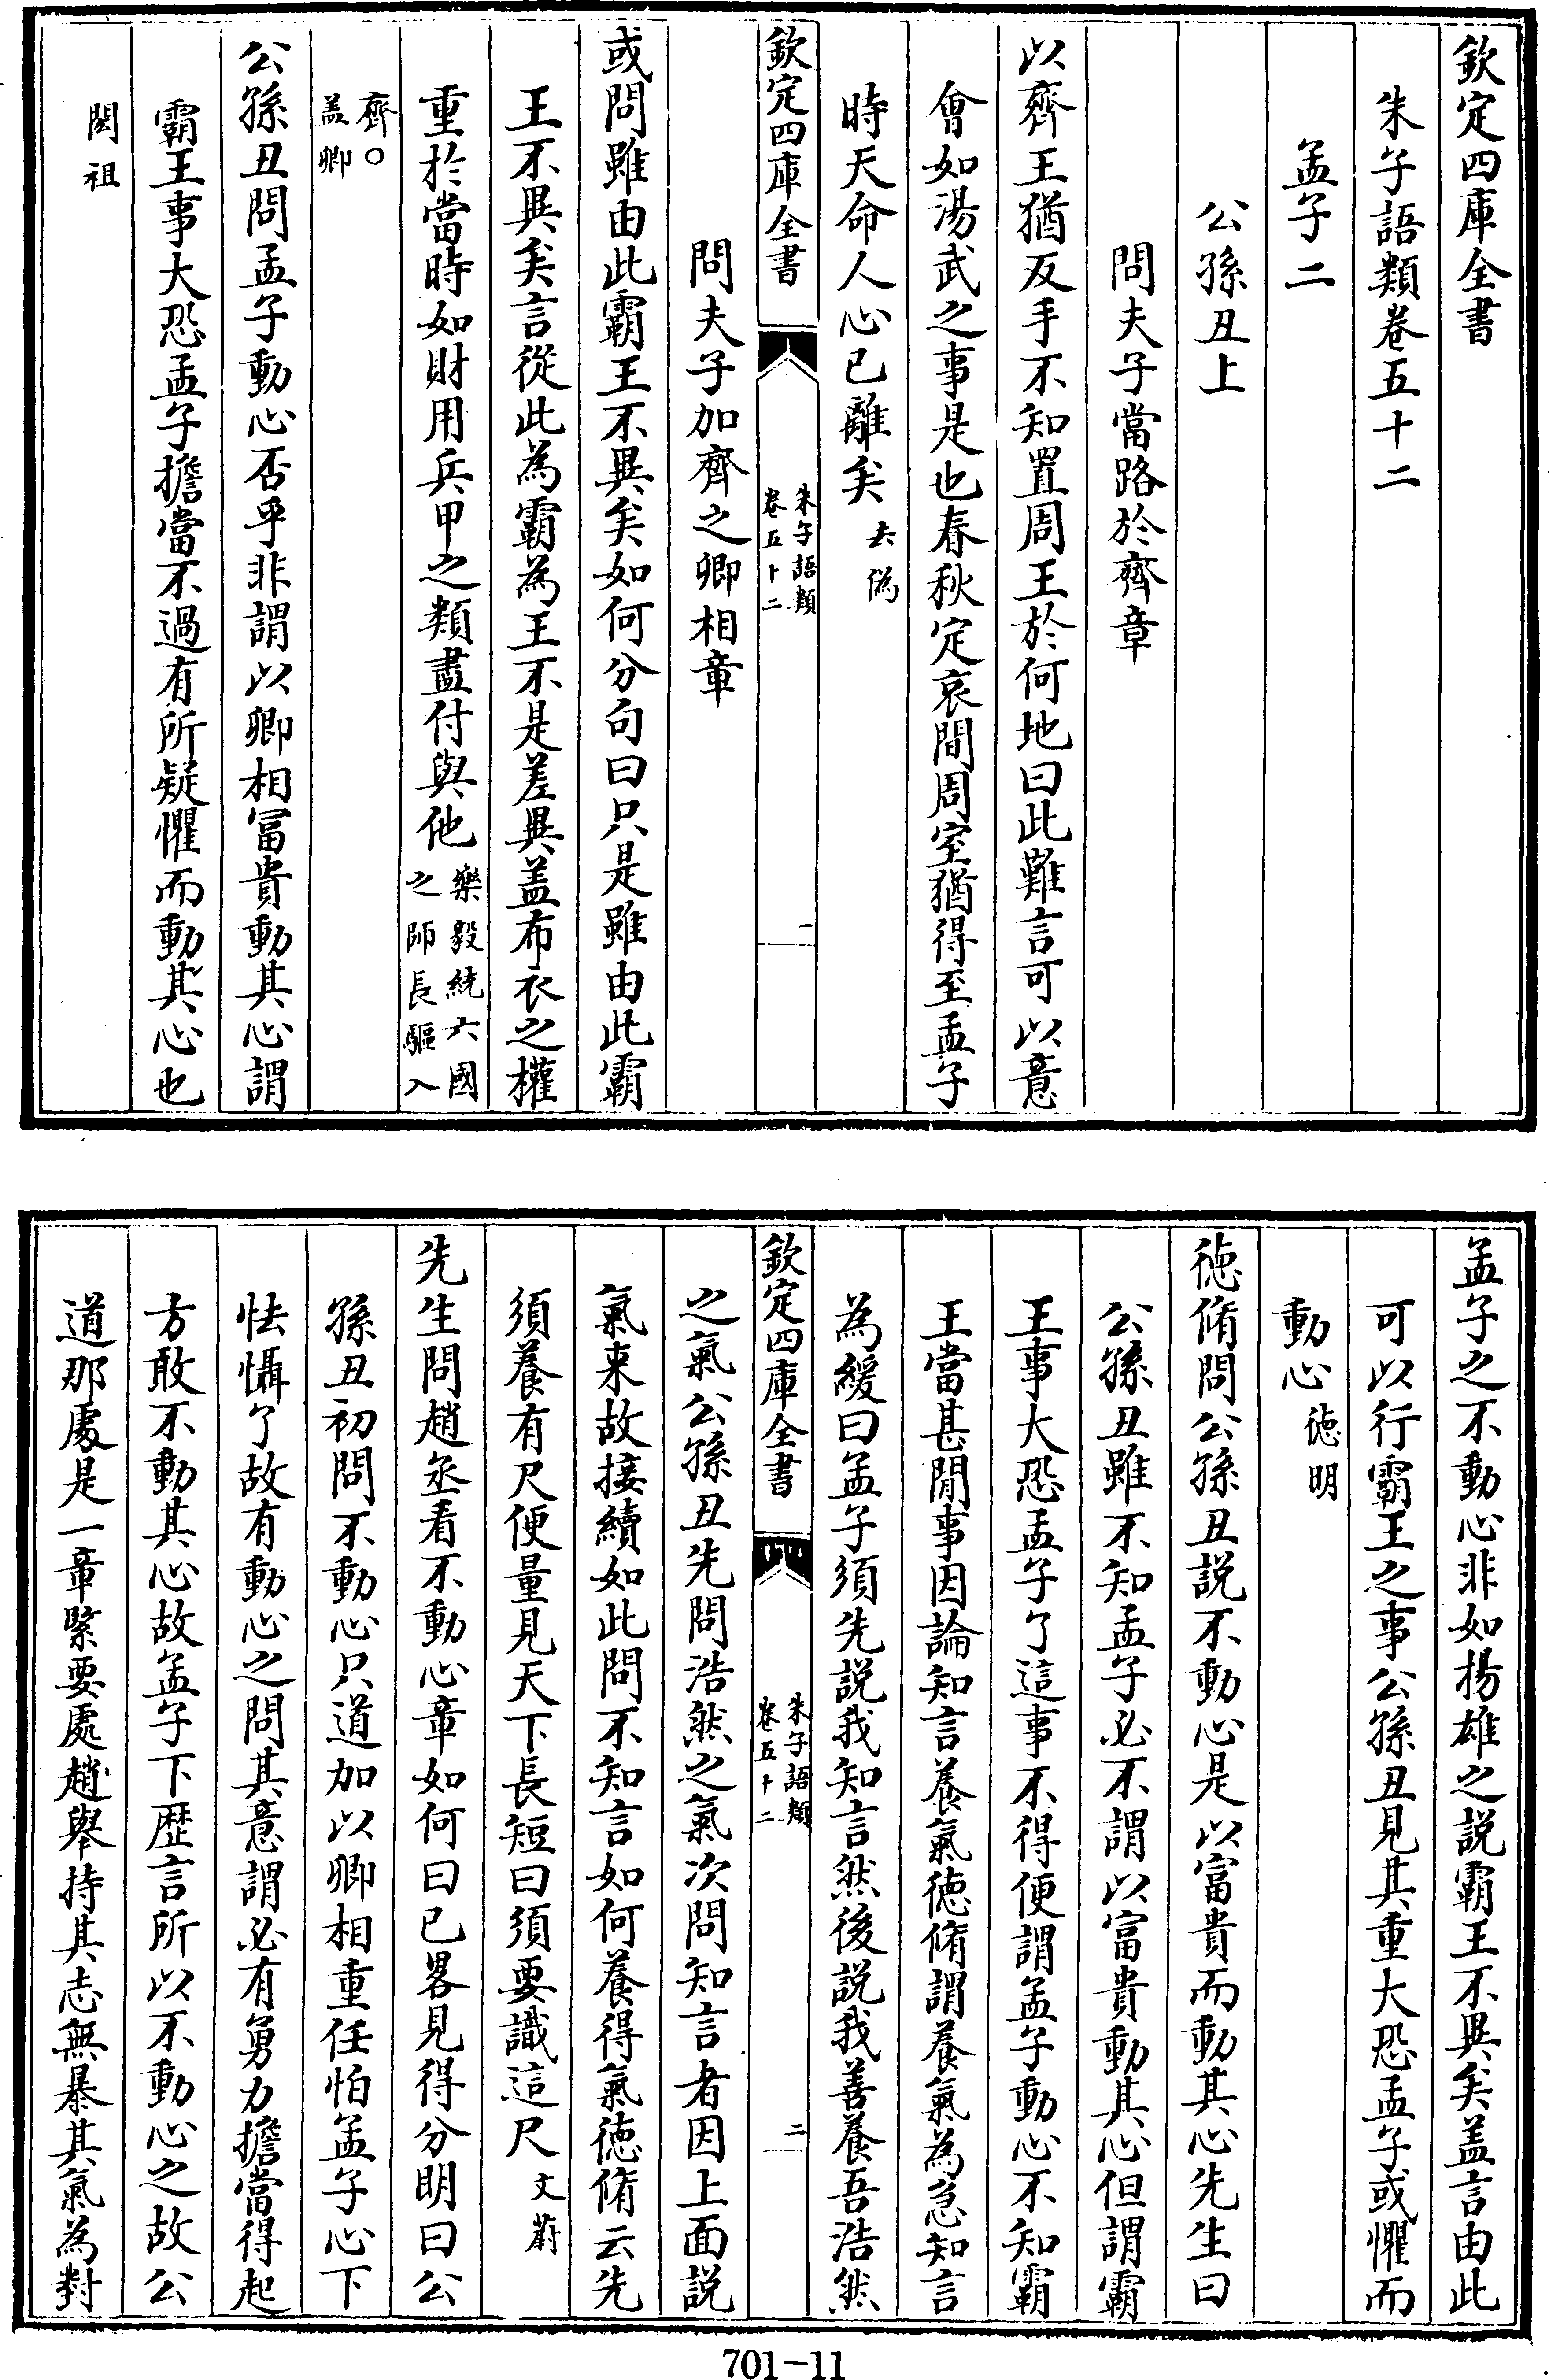 欽定四庫全書
朱子語類卷五十二
孟子二
公孫丑上
問夫子當路於齊章
以齊王猶反手不知置周王於何地曰此難言可以意
會如湯武之事是也春秋定哀間周室猶得至孟子
時天命人心已離矣去偽
欽定四庫全書
朱子語類
卷五十二
一
問夫子加齊之卿相章
或問雖由此霸王不異矣如何分句曰只是雖由此霸
王不異矣言從此為霸為王不是差異盖布衣之權
重於當時如財用兵甲之類盡付與他樂毅統六國
之師長驅入
齊○
盖卿
公孫丑問孟子動心否乎非謂以卿相冨貴動其心謂
霸王事大恐孟子擔當不過有所疑懼而動其心也
閎祖
孟子之不動心非如揚雄之説霸王不異矣盖言由此
可以行霸王之事公孫丑見其重大恐孟子或懼而
動心徳明
徳脩問公孫丑説不動心是以富貴而動其心先生曰
公孫丑雖不知孟子必不謂以富貴動其心但謂霸
王事大恐孟子了這事不得便謂孟子動心不知霸
王當甚閒事因論知言養氣徳脩謂養氣為急知言
為緩曰孟子須先説我知言然後説我善養吾浩然
欽定四庫全書
朱子語類
卷五十二
二
之氣公孫丑先問浩然之氣次問知言者因上面説
氣来故接續如此問不知言如何養得氣徳脩云先
須養有尺便量見天下長短曰須要識這尺文蔚
先生問趙丞看不動心章如何曰已畧見得分明曰公
孫丑初問不動心只道加以卿相重任怕孟子心下
怯懾了故有動心之問其意謂必有勇力擔當得起
方敢不動其心故孟子下歴言所以不動心之故公
道那處是一章緊要處趙舉持其志無暴其氣為對
701-11